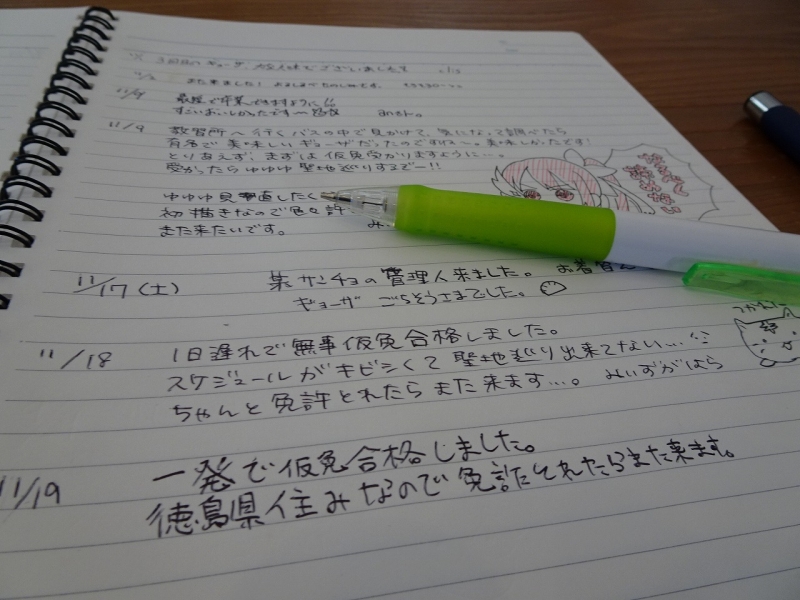 3回目のギョーザ、大変美味でございました!!
また来ました!
11/4
最短で卒業できますように
すごいおいしかったです
11/9 教習所へ行くバスの中で見かけて、気になって調べたら
有名で美味しいギョーザだったのですね〜。美味しかったです!
とりあえず、まずは仮免受かりますように…。
受かったらゆゆゆ聖地巡りするでー!!
ゆゆゆ見直したく
初描きなので色々許
また来たいです。
11/17(土) 某サンチョの管理人来ました。
ギョーザ ごちそうさまでした。
11/18 1日遅れで無事仮免合格しました。
スケジュールがキビシくて聖地巡り出来てない…
ちゃんと免許とれたらまた来ます…。 みいずがはら
11/19 一発で仮免合格しました。
徳島県住みなので免許とれたらまた来ます。